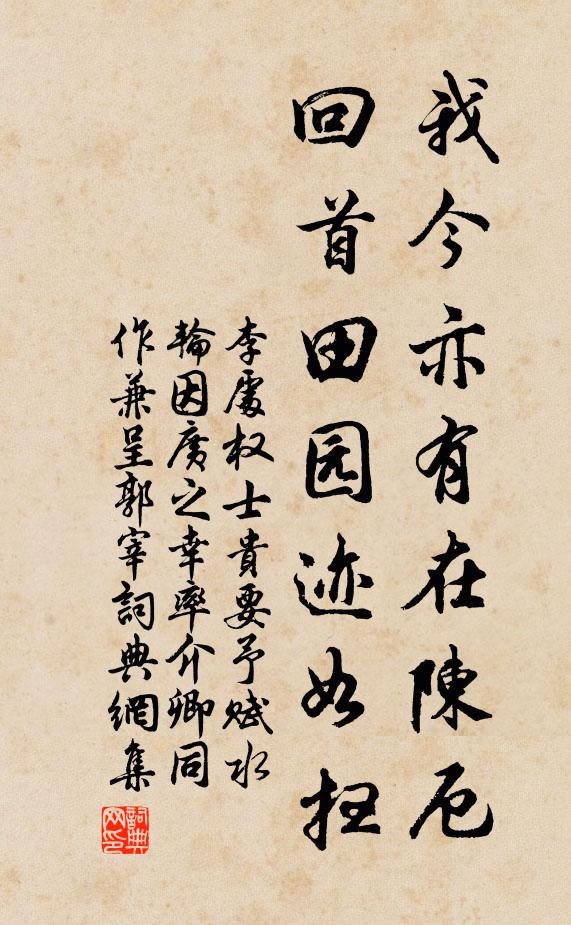 我今亦有在陳厄
回首田园迹如扫
李處权士貴要予賦水
輪因廣之幸率介卿同
作兼呈郭宰詞典網集
詞典网印